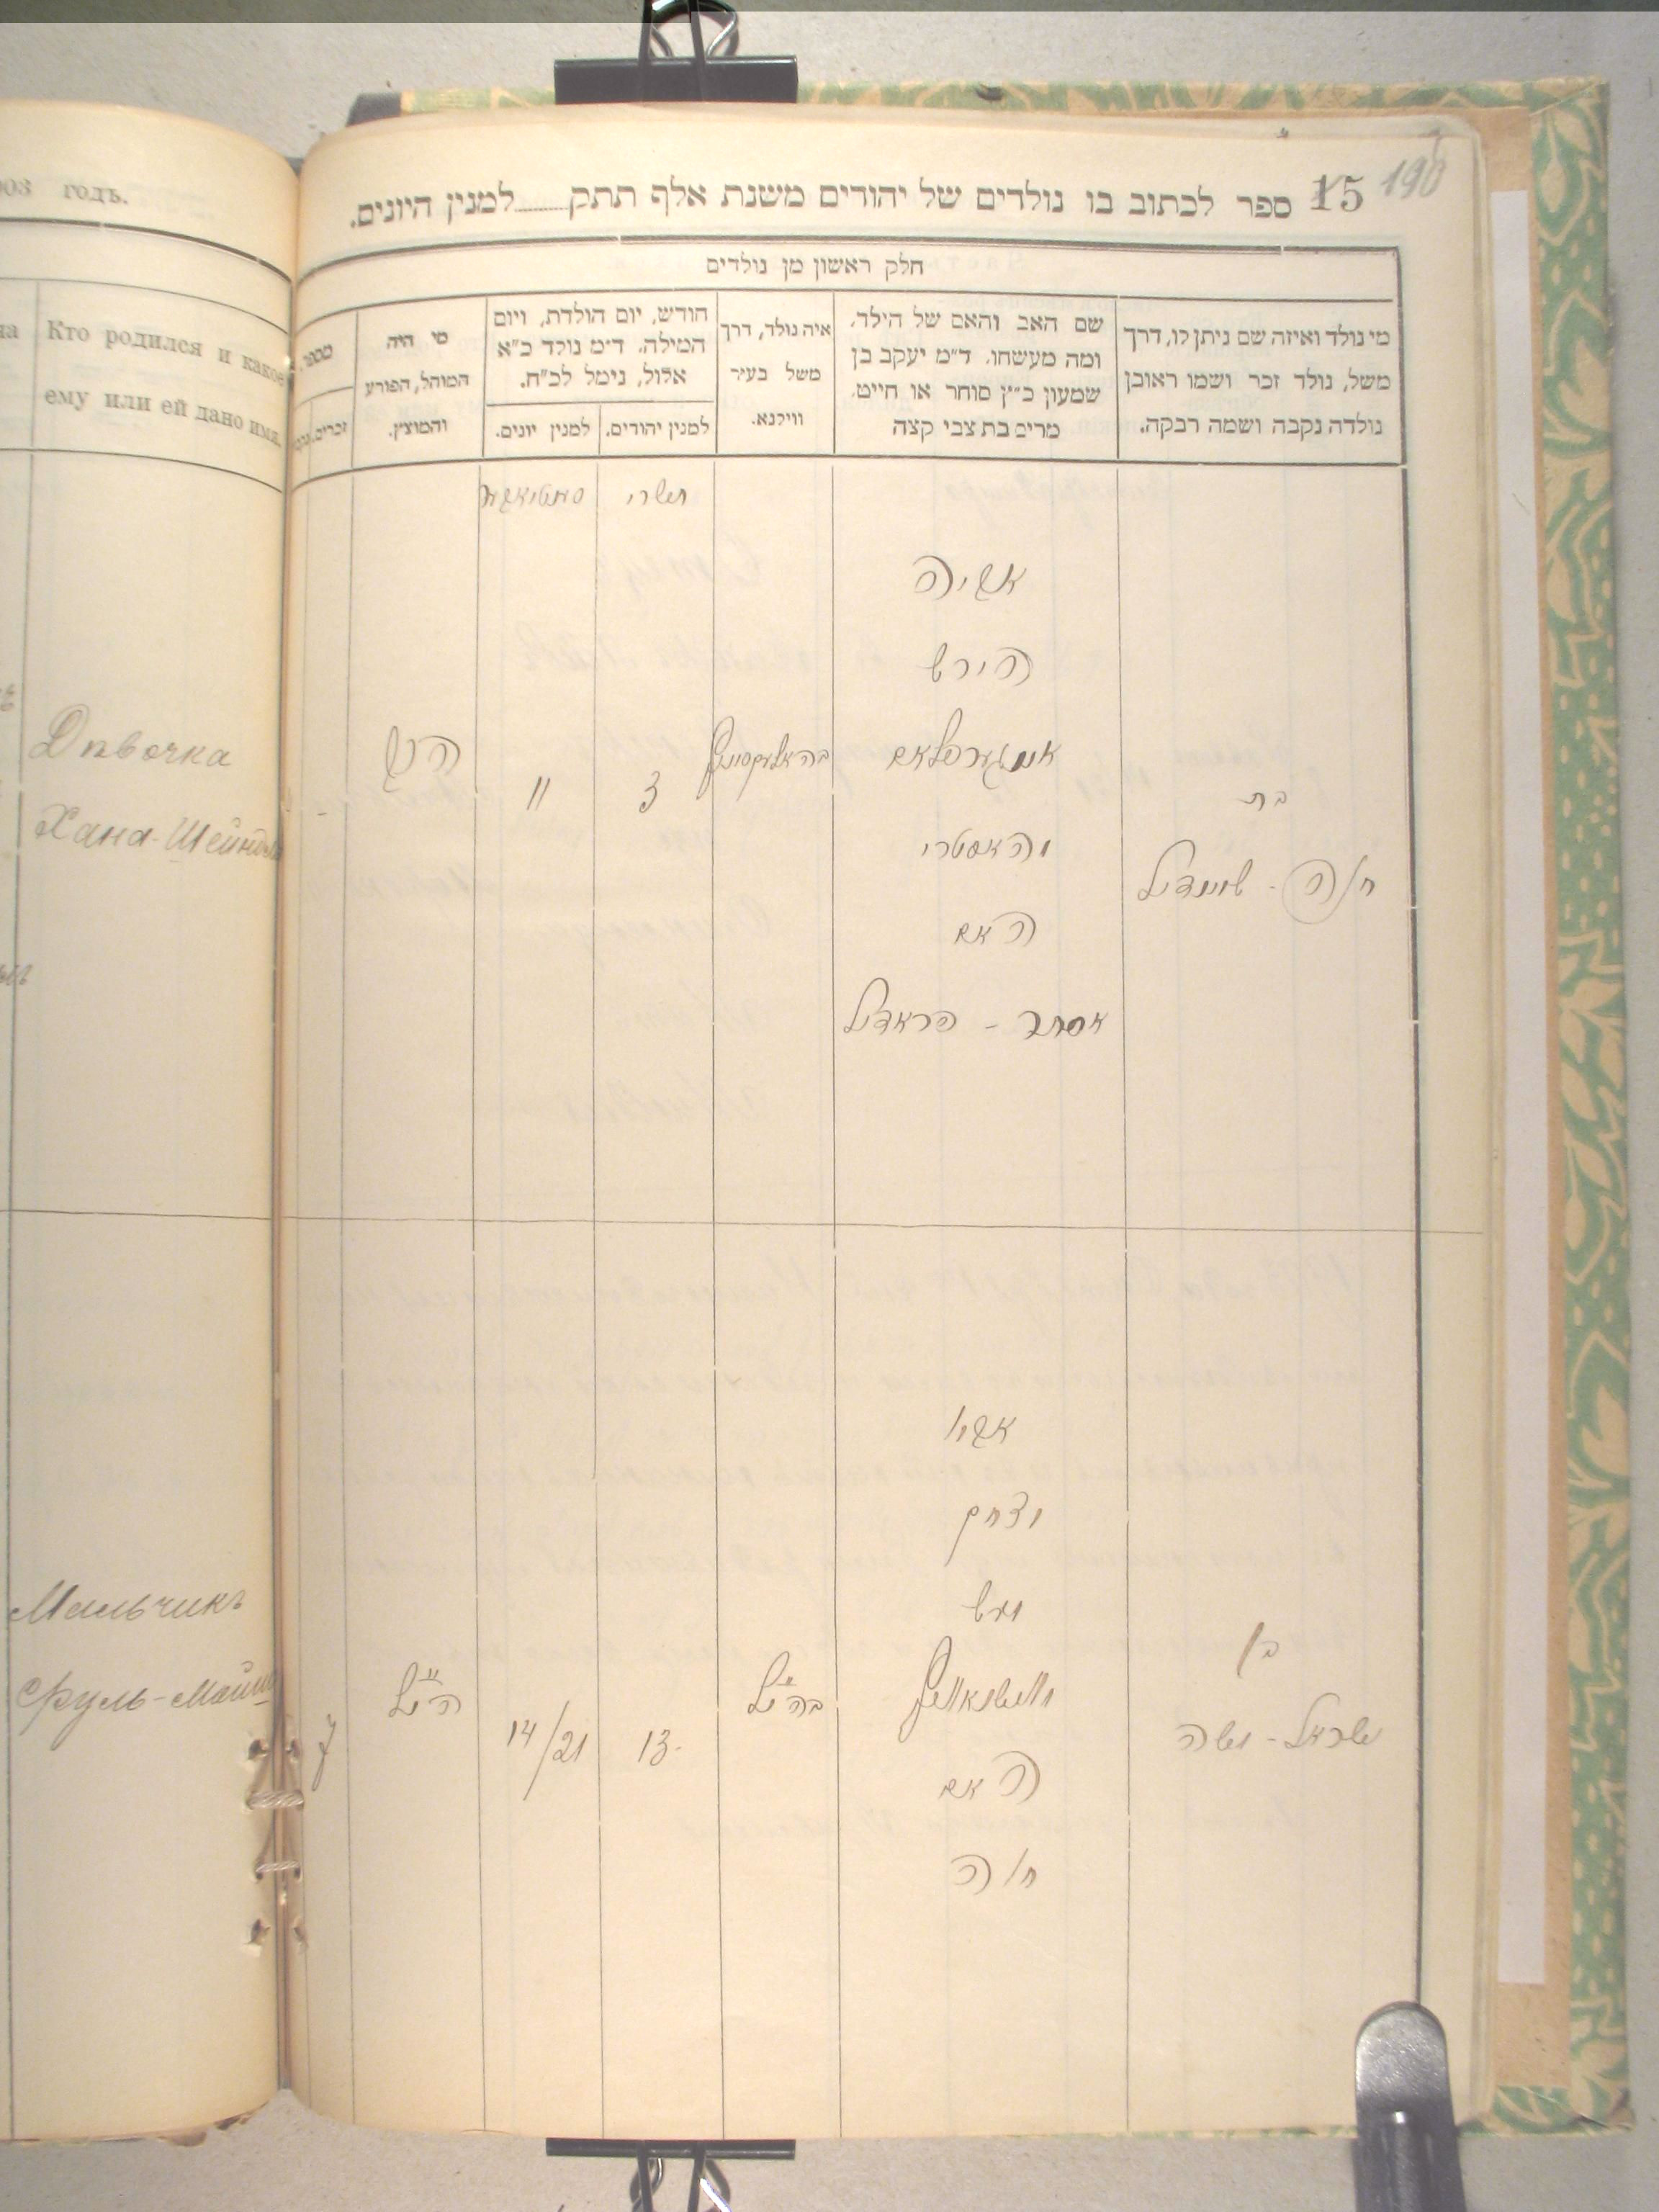 903 годъ.
Кто родился и какое
ему или ей дано имя.
Дѣвочка
Хана-Шейндль
Мальчикъ
Сруль-Мойше
190
15 ספר לכתוב בו נולדים של יהודים משנת אלף תתק למנין היונים.
חלק ראשון מן נולדים
מי נולד ואיזה שם ניתן לו, דרך
משל, נולד זכר ושמו ראובן
נולדה נקבה ושמה רבקה.
שם האב והאם של הילד,
ומה מעשהו. ד"מ יעקב בן
שמעון כ"ץ סוחר או חייט,
מרים בת צבי קצה
איה נולד, דרך
משל בעיר
ווילנא.
חודש, יום הולדת, ויום
המילה. ד"מ נולד כ"א
אלול, נימל לכ"ח.
למנין יהודים.
למנין יונים.
מי היה
המוהל, הפורע
והמוצץ.
מספר
זכרים.
תשרי
אביה
הירש
האם
אסתר - פראדיל
בת
חנה - שיינדיל
3
11
הרב
אביו
יצחק
האם
חנה
בן
ישראל - משה
13
14/21
7